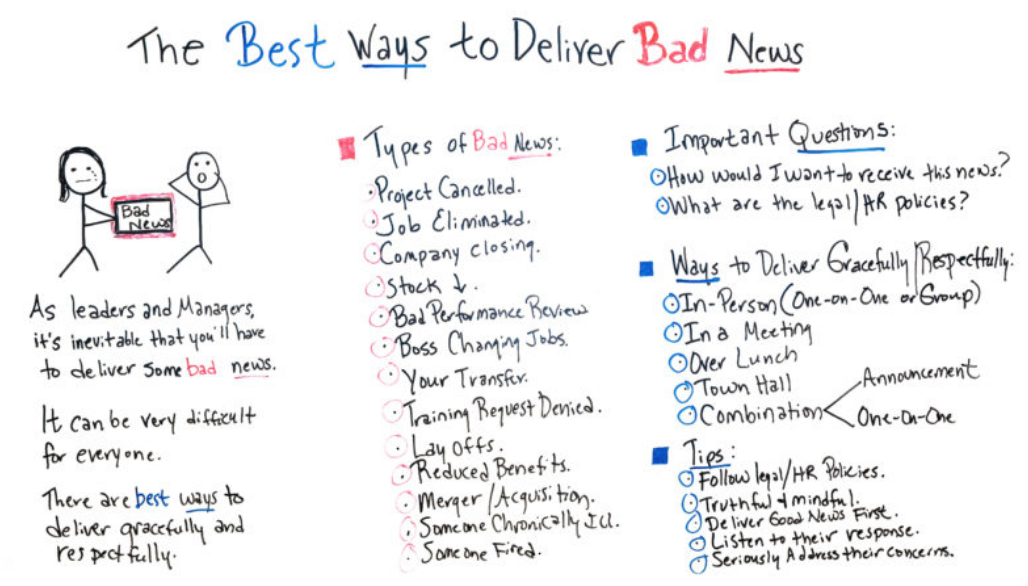 The Best Ways to Deliver Bad News
Bad
News
As leaders and Managers,
it's inevitable that you'll have
to deliver some bad news.
It can be very difficult
for everyone.
There are best ways to
deliver gracefully and
respectfully.
Types of Bad News:
Project Cancelled.
Job Eliminated.
Company closing.
Stock ↓.
Bad Performance Review
Boss Changing Jobs.
Your Transfer.
Training Request Denied.
Lay Offs.
Reduced Benefits.
Merger/Acquisition.
Someone Chronically Ill.
Someone Fired.
Important Questions:
How would I want to receive this news?
What are the legal/HR policies?
Ways to Deliver Gracefully/Respectfully:
In-Person (One-on-One or Group)
In a Meeting
Over Lunch
Town Hall
Combination
Announcement
One-on-One
Tips:
Follow legal/HR Policies.
Truthful & mindful.
Deliver Good News First.
Listen to their response.
Seriously Address their concerns.